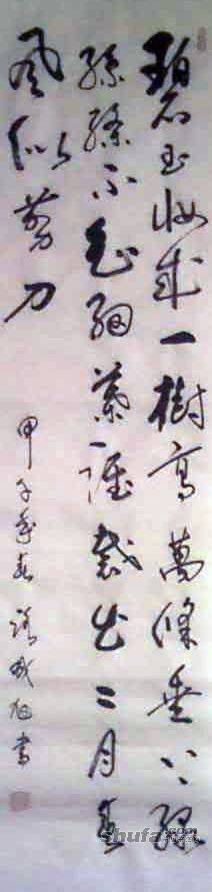 碧玉妝成一樹高萬條垂下綠
絲絛不知細葉誰裁出二月春
風似剪刀
甲子年春 旭書
shufa